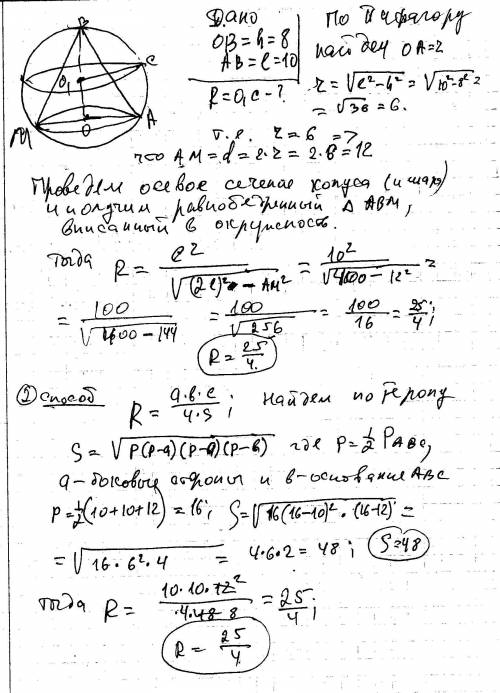 B
C
O₁
M
O
A
Дано
OB = h = 8
AB = l = 10
R = O₁C - ?
По Пифагору
найдем OA = r
r = √(l² - h²) = √(10² - 8²) =
= √36 = 6.
т.е. r = 6 =>
что AM = d = 2·r = 2·6 = 12
Проведем осевое сечение конуса (и шара)
и получим равнобедренный Δ ABM,
вписанный в окружность.
Тогда R = l² / √((2l)² - AM²) = 10² / √(400 - 12²) =
= 100 / √(400 - 144) = 100 / √256 = 100/16 = 25/4;
R = 25/4.
② способ
R = a·b·c / 4·S; Найдем по Герону
S = √(P(P-a)(P-a)(P-b)) где P = ½ P ABC,
a - боковые стороны и b - основание ABC
P = ½(10+10+12) = 16; S = √(16(16-10)²·(16-12)) =
= √(16·6²·4) = 4·6·2 = 48; S = 48
Тогда R = 10·10·12 / 4·48 = 25/4;
R = 25/4